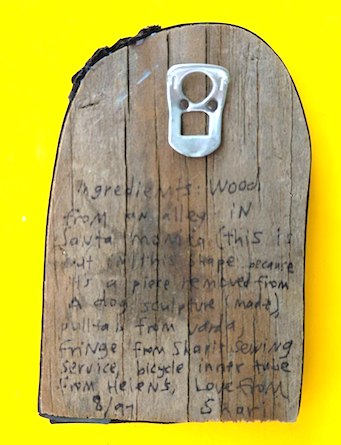 Ingredients: Wood
from an alley in
Santa Monica. (this is
cut in this shape because
it's a piece removed from
A dog sculpture I made),
pulltab from yard,
fringe from Shari's sewing
service, bicycle inner tube
from Helens, Love from
8/97 Shari